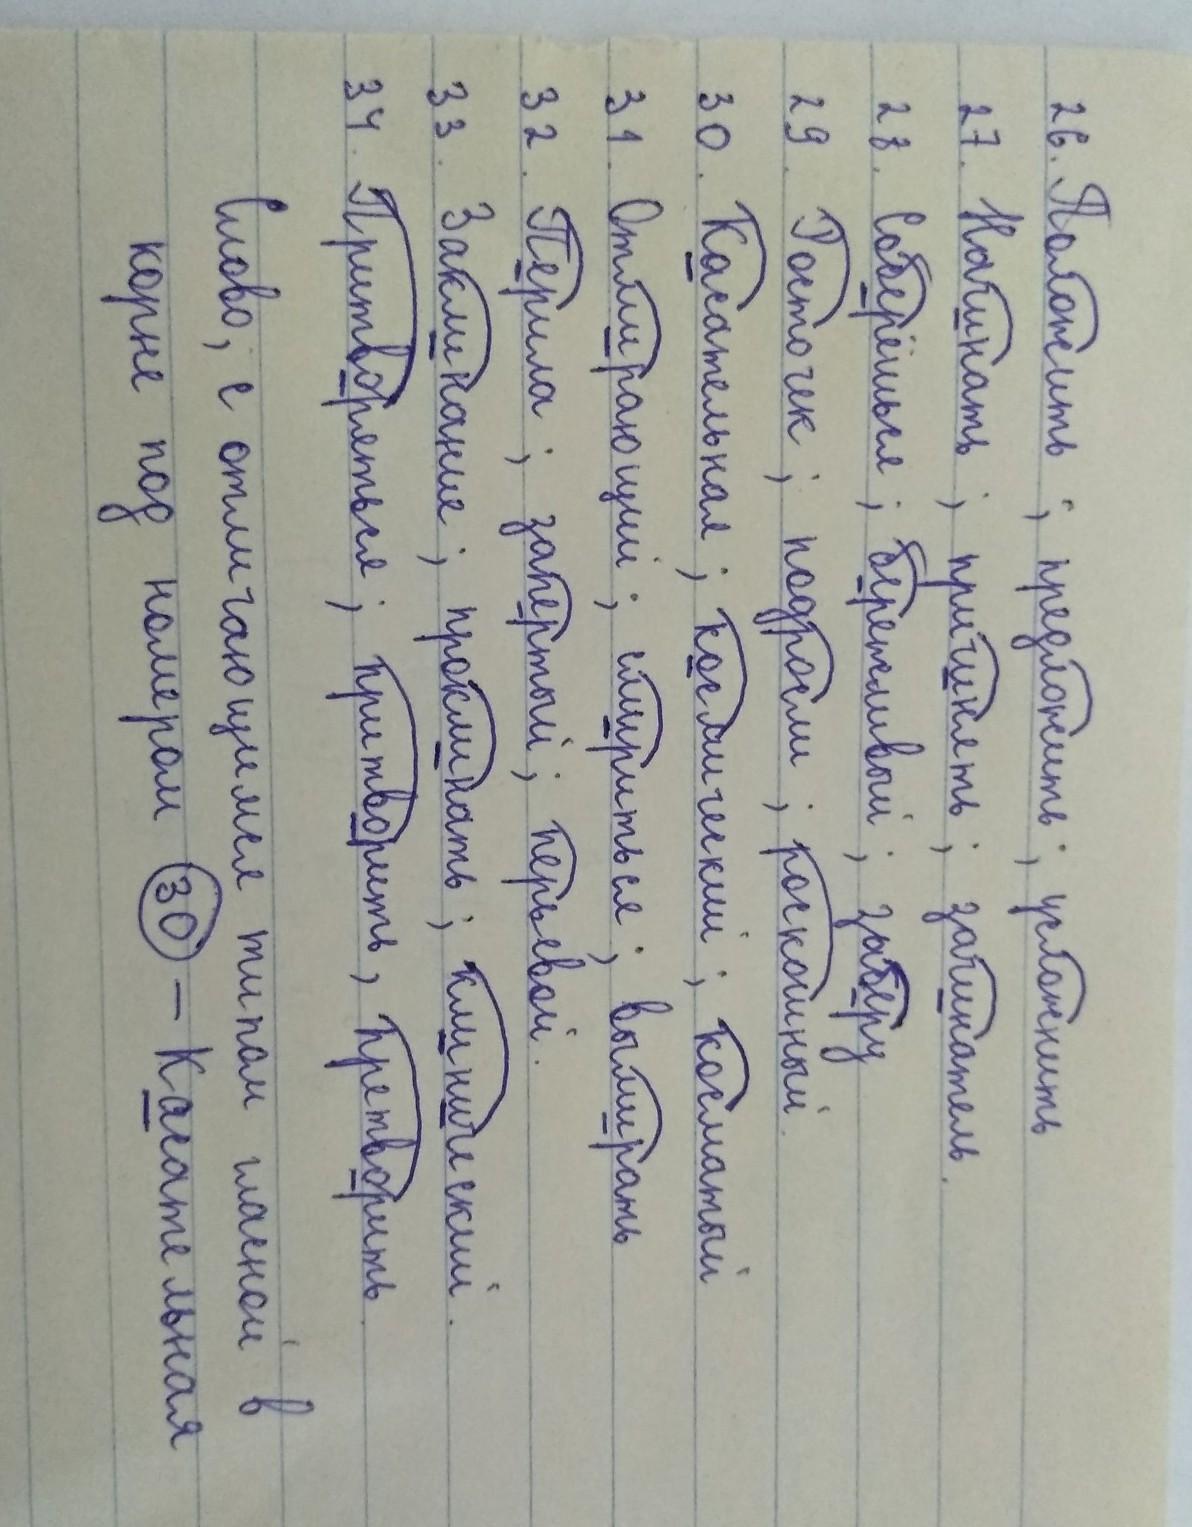 26. Положить ; предложить ; усложнить
27. Начинать ; причинять ; зачинатель.
28. Соберёшься ; бережливый ; заберу
29. Росточек ; подросли ; роскошный.
30. Касательная ; космический ; косматый
31. Отмирающий ; смириться ; вымирать
32. Перила ; запертый ; перьевой.
33. Заклинание ; проклинать ; клинический.
34. Притворяться ; притворить, претворить.
Слово, с отличающимся типом гласной в
корне под номером 30 – Касательная